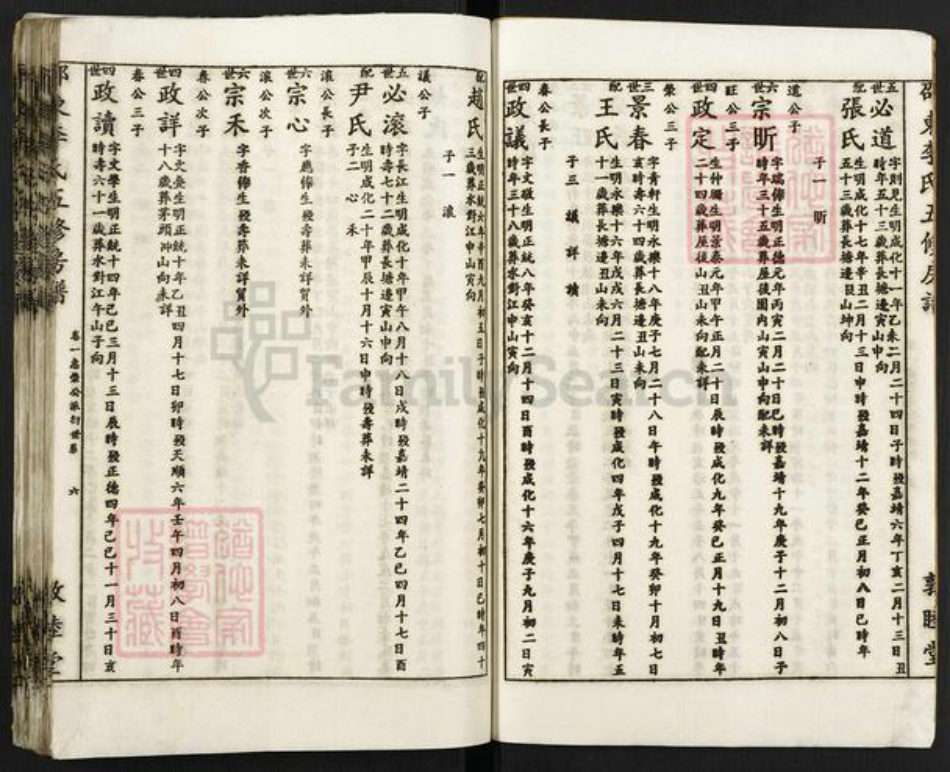 邵東李氏五修房譜
敦睦堂
五世 必道 字則見生明成化十一年乙未二月二十四日子時歿嘉靖六年丁亥二月十三日丑時年五十三歲葬長塘邊寅山申向
配 張氏 生明成化十七年辛丑二月十三日申時歿嘉靖十二年癸巳正月初八日巳時年五十三歲葬長塘邊艮山坤向
子一 昕
道公子
六世 宗昕 字瑞傳生明正德元年丙寅二月二十日巳時歿嘉靖十九年庚子十二月初八日子時年三十五歲葬屋後園內山寅山申向配未詳
旺公三子
四世 政定 生明景泰元年甲午正月二十日辰時歿成化九年癸巳正月十九日丑時年二十四歲葬屋後山丑山未向配未詳
榮公三子
三世 景春 字青軒生明永樂十八年庚子七月二十八日午時歿成化十九年癸卯十月初七日亥時壽六十四歲葬長塘邊丑山未向
配 王氏 生明永樂十六年戊戌六月二十三日寅時歿成化四年戊子四月十七日未時年五十一歲葬長塘邊丑山未向
子三 議 詳 讀
春公長子
四世 政議 字文敬生明正統八年癸亥十二月十四日酉時歿成化十六年庚子九月初二日寅時年三十八歲葬水對江申山寅向
配 趙氏 生明正統六年辛酉九月初五日子時歿成化十九年癸卯七月初十日巳時年四十三歲葬水對江申山寅向
子一 滾
議公子
五世 必滾 字長江生明成化十年甲午八月十八日戌時歿嘉靖二十四年乙巳四月十七日酉時壽七十二歲葬長塘邊寅山申向
配 尹氏 生明成化二十年甲辰十月十六日申時歿壽葬未詳
子二 心 禾
滾公長子
六世 宗心 字應傳生歿壽葬未詳貿外
滾公次子
六世 宗禾 字香傳生歿壽葬未詳貿外
春公次子
四世 政詳 字文臺生明正統十年乙丑四月十七日卯時歿天順六年壬午四月初八日酉時年十八歲葬茅頭冲山向未詳
春公三子
四世 政讀 字文學生明正統十四年己巳三月十三日辰時歿正德四年己巳十一月三十日亥時壽六十一歲葬水對江午山子向
邵東李氏五修房譜
卷一忠榮公派衍世系 六
敦睦堂
FamilySearch